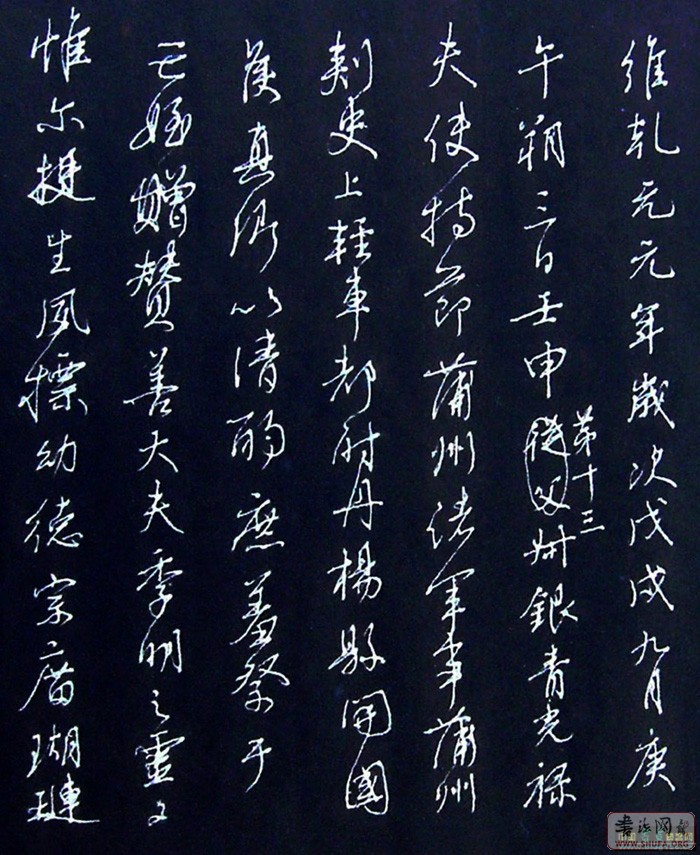 維乾元元年歲次戊戌九月庚
午朔三日壬申從父第十三叔銀青光祿
夫使持節蒲州諸軍事蒲州
刺史上輕車都尉丹楊縣開國
侯真卿以清酌庶羞祭于
亡姪贈贊善大夫季明之靈
惟尔挺生夙標幼德宗廟瑚璉
WWW.SHUFA.ORG